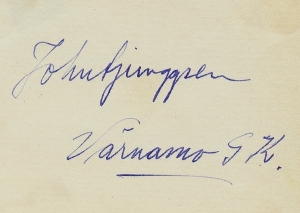 John Ljunggren
Värnamo G K.